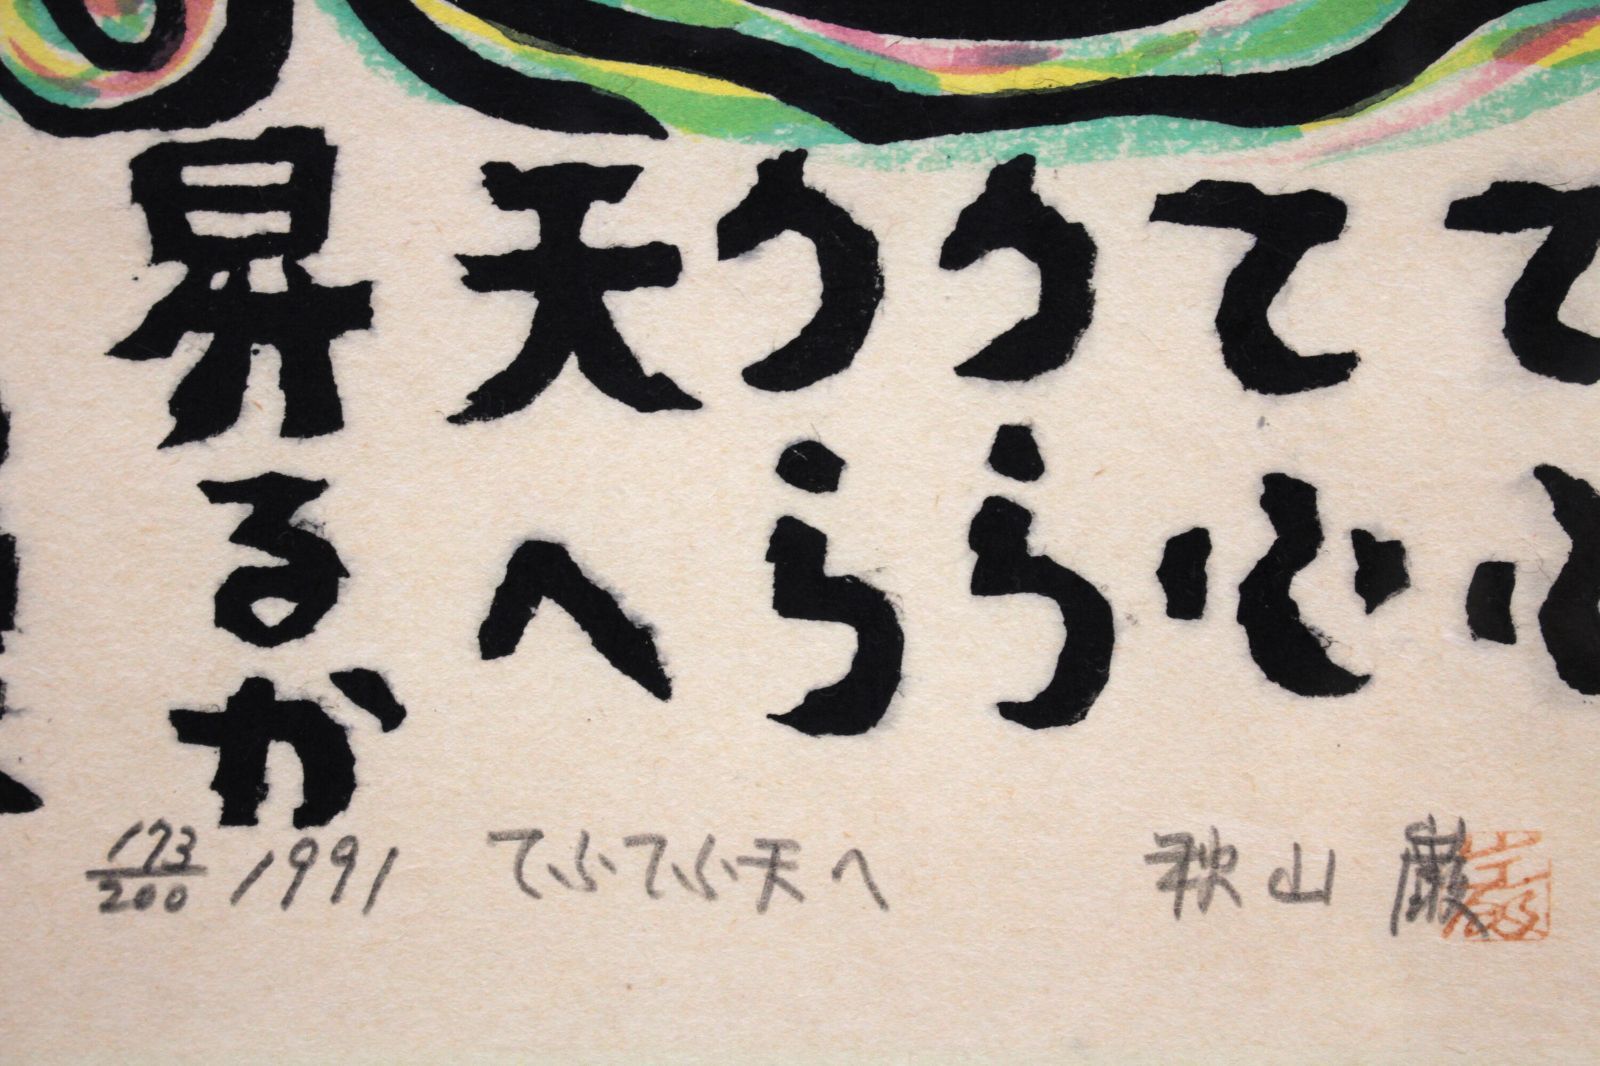 てふ
てふ
うら
うら
天へ
昇るか
173/200 1991 てふてふ天へ 秋山 巌